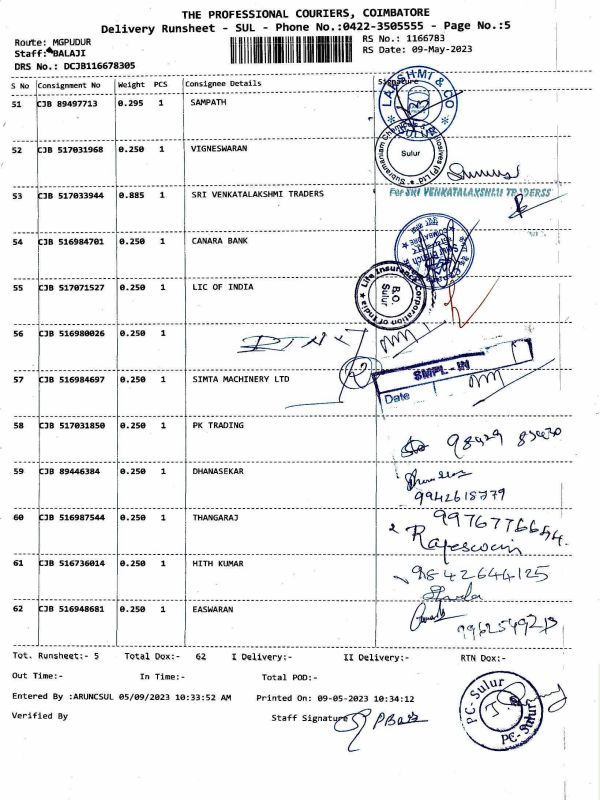 THE PROFESSIONAL COURIERS, COIMBATORE
Delivery Runsheet - SUL - Phone No.:0422-3505555 - Page No.:5
Route: MGPUDUR
RS No.: 1166783
Staff: BALAJI
RS Date: 09-May-2023
DRS No.: DCJB116678305
S No Consignment No Weight PCS Consignee Details Signature
51 CJB 89497713 0.295 1 SAMPATH
LAKSHMI & CO
SULUR
52 CJB 517031968 0.250 1 VIGNESWARAN
Subramaniam Chemicals & Explosives (P) Ltd
Sulur
53 CJB 517033944 0.885 1 SRI VENKATALAKSHMI TRADERS
For SRI VENKATALAKSHMI TRADERSS
54 CJB 516984701 0.250 1 CANARA BANK
55 CJB 517071527 0.250 1 LIC OF INDIA
Life Insurance Corporation of India
B.O.
Sulur
56 CJB 516980026 0.250 1
57 CJB 516984697 0.250 1 SIMTA MACHINERY LTD
SMPL - IN
Date
58 CJB 517031850 0.250 1 PK TRADING
59 CJB 89446384 0.250 1 DHANASEKAR
60 CJB 516987544 0.250 1 THANGARAJ
Rajeswari
61 CJB 516736014 0.250 1 HITH KUMAR
9842644125
62 CJB 516948681 0.250 1 EASWARAN
Tot. Runsheet:- 5 Total Dox:- 62 I Delivery:- II Delivery:- RTN Dox:-
Out Time:- In Time:- Total POD:-
Entered By :ARUNCSUL 05/09/2023 10:33:52 AM Printed On: 09-05-2023 10:34:12
Verified By Staff Signature
PC- Sulur
PC- Sulur